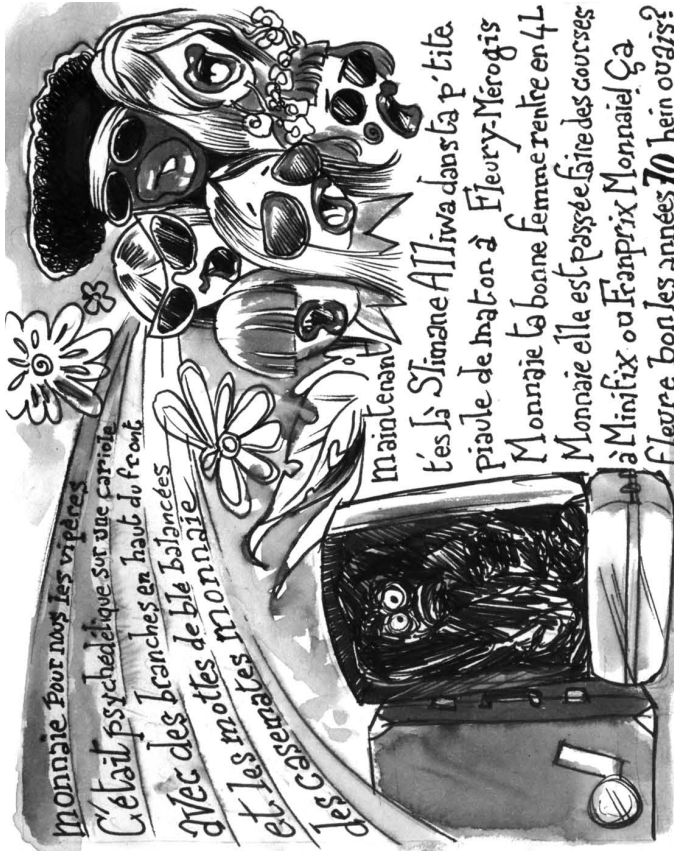 monnaie Pour nous les vipères
C'était psychédélique sur une cariole
avec des branches en haut du front
avec des mottes de blé balancées
et les mottes monnaie
des casemates
maintenant
t'es là Slimane Alliwa dans ta p'tite
piaule de maton à Fleury-Mérogis
Monnaie ta bonne femme rentre en 4L
Monnaie elle est passée faire des courses
à Minifix ou Franprix Monnaie! Ça
fleure bon les années 70 hein ouais?